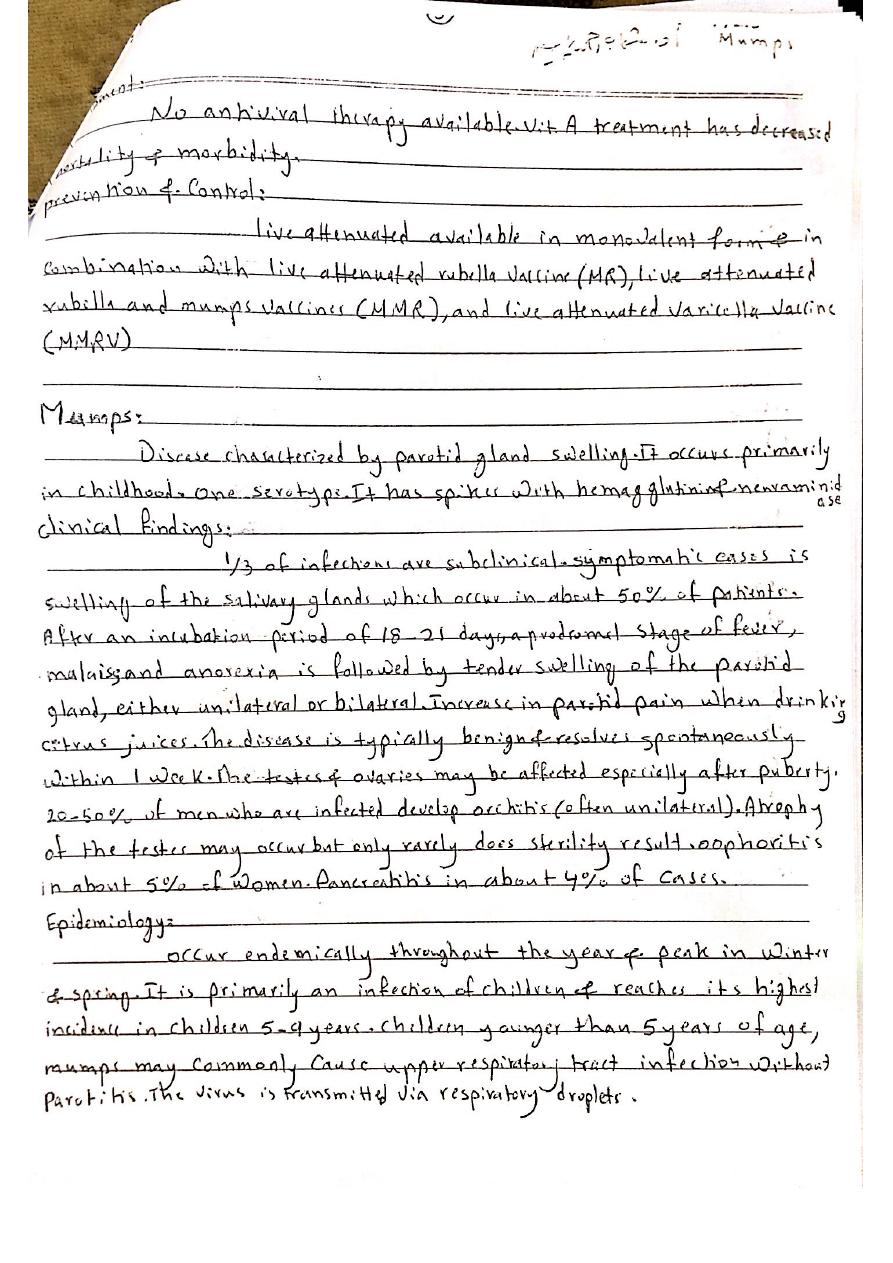 Mumps
ment:
No antiviral therapy available. Vit A treatment has decreased
mortality & morbidity.
prevention & Control:
live attenuated available in monovalent form & in
Combination with live attenuated rubella vaccine (MR), live attenuated
rubilla and mumps vaccines (MMR), and live attenuated varicella vaccine
(MMRV)
Mumps:
Disease characterized by parotid gland swelling. It occurs primarily
in childhood. one serotype. It has spikes with hemagglutinin & neuraminid
ase
clinical findings:
1/3 of infections are subclinical. symptomatic cases is
swelling of the salivary glands which occur in about 50% of patients.
After an incubation period of 18-21 days, a prodromal stage of fever,
malaise, and anorexia is followed by tender swelling of the parotid
gland, either unilateral or bilateral. Increase in parotid pain when drinking
citrus juices. The disease is typically benign & resolves spontaneously
within 1 week. The testes & ovaries may be affected especially after puberty.
20-50% of men who are infected develop orchitis (often unilateral). Atrophy
of the testes may occur but only rarely does sterility result. oophoritis
in about 5% of women. Pancreatitis in about 4% of cases.
Epidemiology:
occur endemically throughout the year & peak in winter
& spring. It is primarily an infection of children & reaches its highest
incidence in children 5-9 years. children younger than 5 years of age,
mumps may commonly cause upper respiratory tract infection without
parotitis. The virus is transmitted via respiratory droplets.